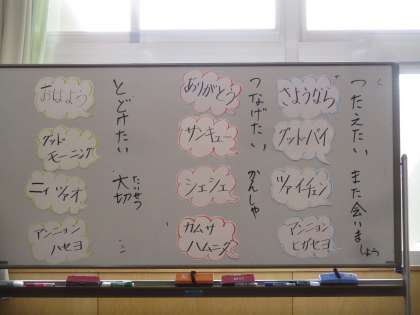 つたえたい
また会いましょう
さようなら
グッドバイ
ツァイチェン
アンニョン
ヒガセヨ
つなげたい
かんしゃ
ありがとう
サンキュー
シェシェ
カムサ
ハムニダ
とどけたい
たいせつ
大切
おはよう
グッド
モーニング
ニィツァオ
アンニョン
ハセヨ